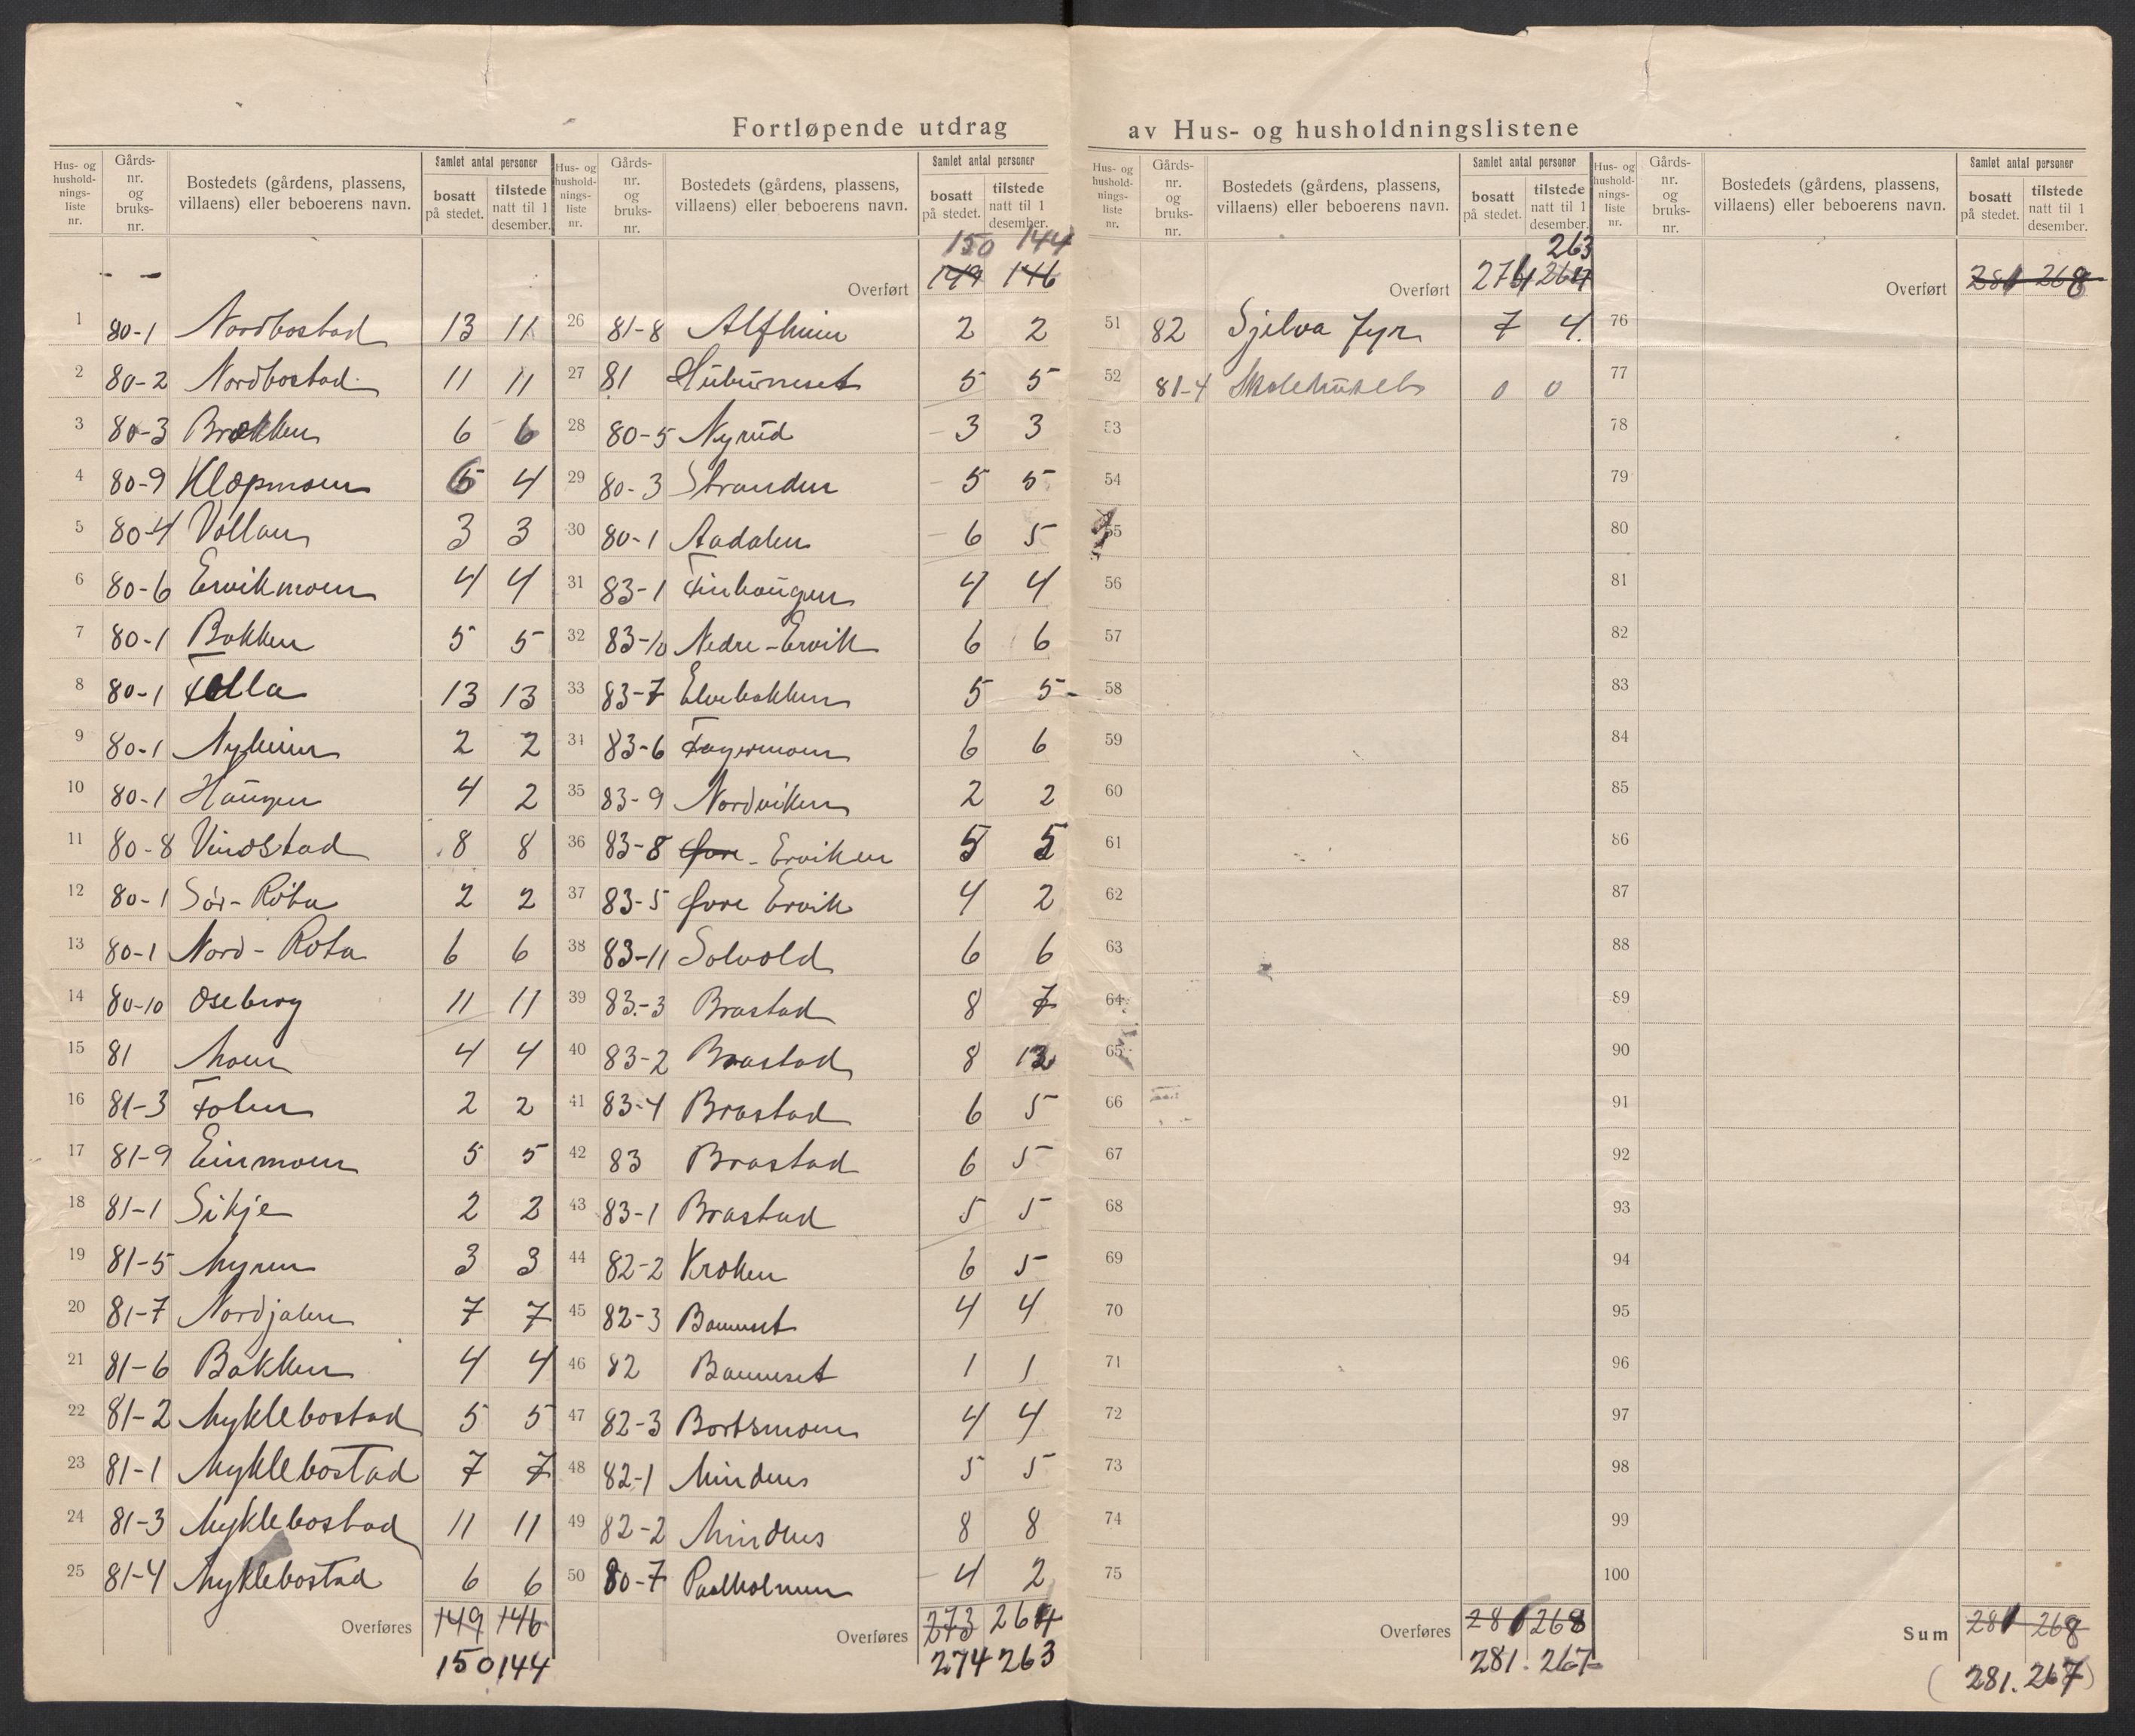 Fortløpende utdrag av Hus- og husholdningslistene
Hus- og husholdningsliste nr. Gårds-nr. og bruks-nr. Bostedets (gårdens, plassens, villaens) eller beboerens navn. Samlet antal personer bosatt på stedet. tilstede natt til 1 desember.
1 80-1 Nordbostad 13 11
2 80-2 Nordbostad 11 11
3 80-3 Brekken 6 6
4 80-9 Klopmoen 6 4
5 80-4 Vollan 3 3
6 80-6 Ervikmoen 4 4
7 80-1 Bakken 5 5
8 80-1 Folla 13 13
9 80-1 Nyheim 2 2
10 80-1 Haugen 4 2
11 80-8 Vindstad 8 8
12 80-1 Sør-Rota 2 2
13 80-1 Nord-Rota 6 6
14 80-10 Oseberg 11 11
15 81 Moen 4 4
16 81-3 2 2
17 81-9 Einmoen 5 5
18 81-1 Sikje 2 2
19 81-5 Myren 3 3
20 81-7 Nordjalen 7 7
21 81-6 Bakken 4 4
22 81-2 Myklebostad 5 5
23 81-1 Myklebostad 7 7
24 81-3 Myklebostad 11 11
25 81-4 Myklebostad 6 6
Overføres 149 146
150 144
Hus- og husholdningsliste nr. Gårds-nr. og bruks-nr. Bostedets (gårdens, plassens, villaens) eller beboerens navn. Samlet antal personer bosatt på stedet. tilstede natt til 1 desember.
150 144
Overført 149 146
26 81-8 Alfheim 2 2
27 81 5 5
28 80-5 Nyrud 3 3
29 80-3 Stranden 5 5
30 80-1 Aadalen 6 5
31 83-1 Finhaugen 4 4
32 83-10 Nedre-Ervik 6 6
33 83-7 Elvebakken 5 5
34 83-6 Fagermoen 6 6
35 83-9 Nordviken 2 2
36 83-8 Øvre-Erviken 5 5
37 83-5 Øvre Ervik 4 2
38 83-11 Solvold 6 6
39 83-3 Brastad 8 7
40 83-2 Brastad 8 12
41 83-4 Brastad 6 5
42 83 Brastad 6 5
43 83-1 Brastad 5 5
44 82-2 Kroken 6 5
45 82-3 Bauneset 4 4
46 82 Bauneset 1 1
47 82-3 Bortsmoen 4 4
48 82-1 Mindnes 5 5
49 82-2 Mindnes 8 8
50 80-7 Paalholmen 4 2
Overføres 273 264
274 263
Hus- og husholdningsliste nr. Gårds-nr. og bruks-nr. Bostedets (gårdens, plassens, villaens) eller beboerens navn. Samlet antal personer bosatt på stedet. tilstede natt til 1 desember.
263
Overført 274 264
51 82 Sjelva fyr 7 4
52 81-4 Skolehuset 0 0
53
54
55
56
57
58
59
60
61
62
63
64
65
66
67
68
69
70
71
72
73
74
75
Overføres 281 268
281. 267
Hus- og husholdningsliste nr. Gårds-nr. og bruks-nr. Bostedets (gårdens, plassens, villaens) eller beboerens navn. Samlet antal personer bosatt på stedet. tilstede natt til 1 desember.
Overført 281 268
76
77
78
79
80
81
82
83
84
85
86
87
88
89
90
91
92
93
94
95
96
97
98
99
100
Sum 281 268
(281. 267)